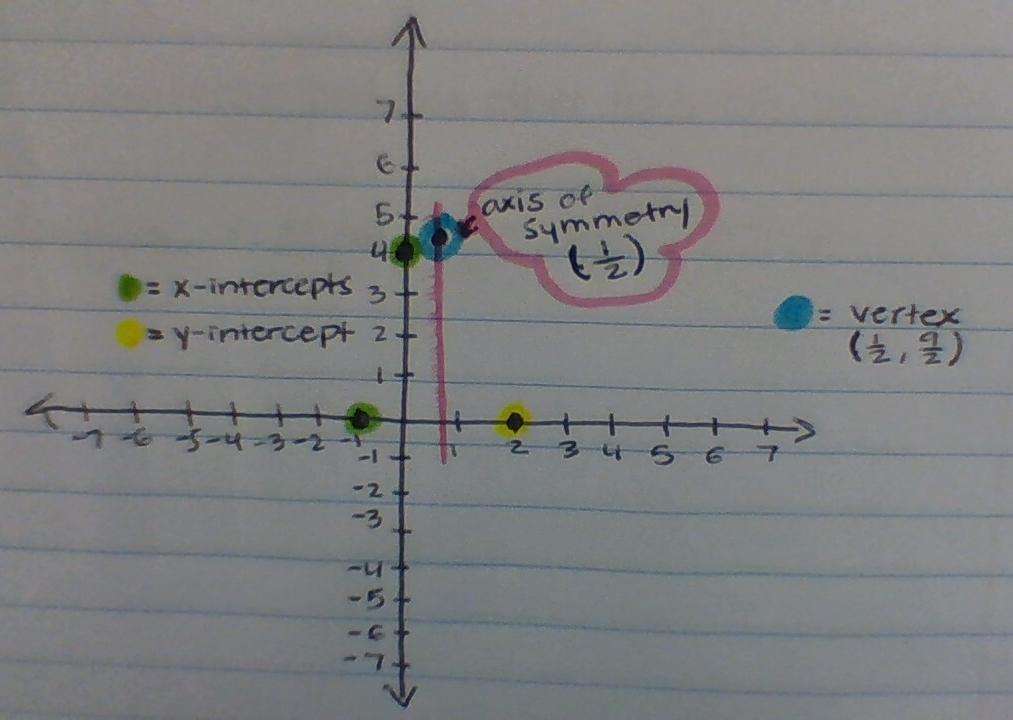 7
6
5
4
3
2
1
axis of
symmetry
(-½)
= x-intercepts
= y-intercept
= vertex
(½, 9/2)
-7 -6 -5 -4 -3 -2 -1 1 2 3 4 5 6 7
-1
-2
-3
-4
-5
-6
-7